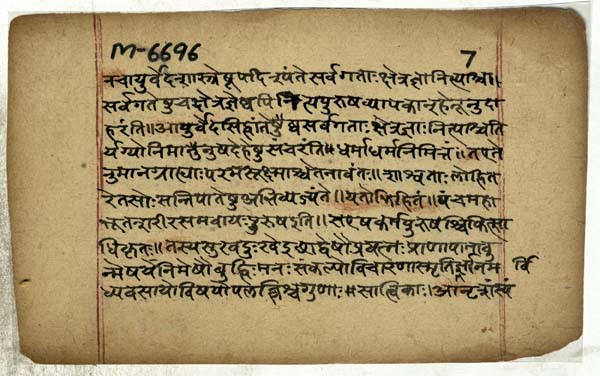 M-6696 7
नचायुर्वेदशास्त्रेषूपदिश्यंते सर्वगताः क्षेत्रज्ञो नित्याश्च॥
सर्वगतेषु च क्षेत्रज्ञेष्वपि नित्यपुरुषव्यापकान्हेतूनुदा
हरंति॥ आयुर्वेदसिद्धांतेष्वसर्वगताः क्षेत्रज्ञाः नित्याश्चति
र्यग्योनिमानुषदेहेषु संचरंति॥ धर्माधर्मनिमित्तं॥ तएते
नुमानग्राह्याः परमसूक्ष्माश्चेतनावंतः॥ शाश्वताः लोहित
रेतसोः सन्निपातेषु अभिव्यज्यंते॥ यतोभिहितं॥ पंचमहा
भूतशरीरसमवायः पुरुष इति॥ सएषकर्मपुरुषश्चिकित्सा
धिकृतः॥ तस्य सुखदुःखे इच्छाद्वेषौ प्रयत्नः प्राणापानावु
न्मेषनिमेषौ बुद्धिः मनः संकल्पो विचारणास्मृतिर्ज्ञानम र्वि
ध्यवसायो विषयोपलब्धिश्च गुणाः॥ सात्विकाः॥ आनृशंस्यं